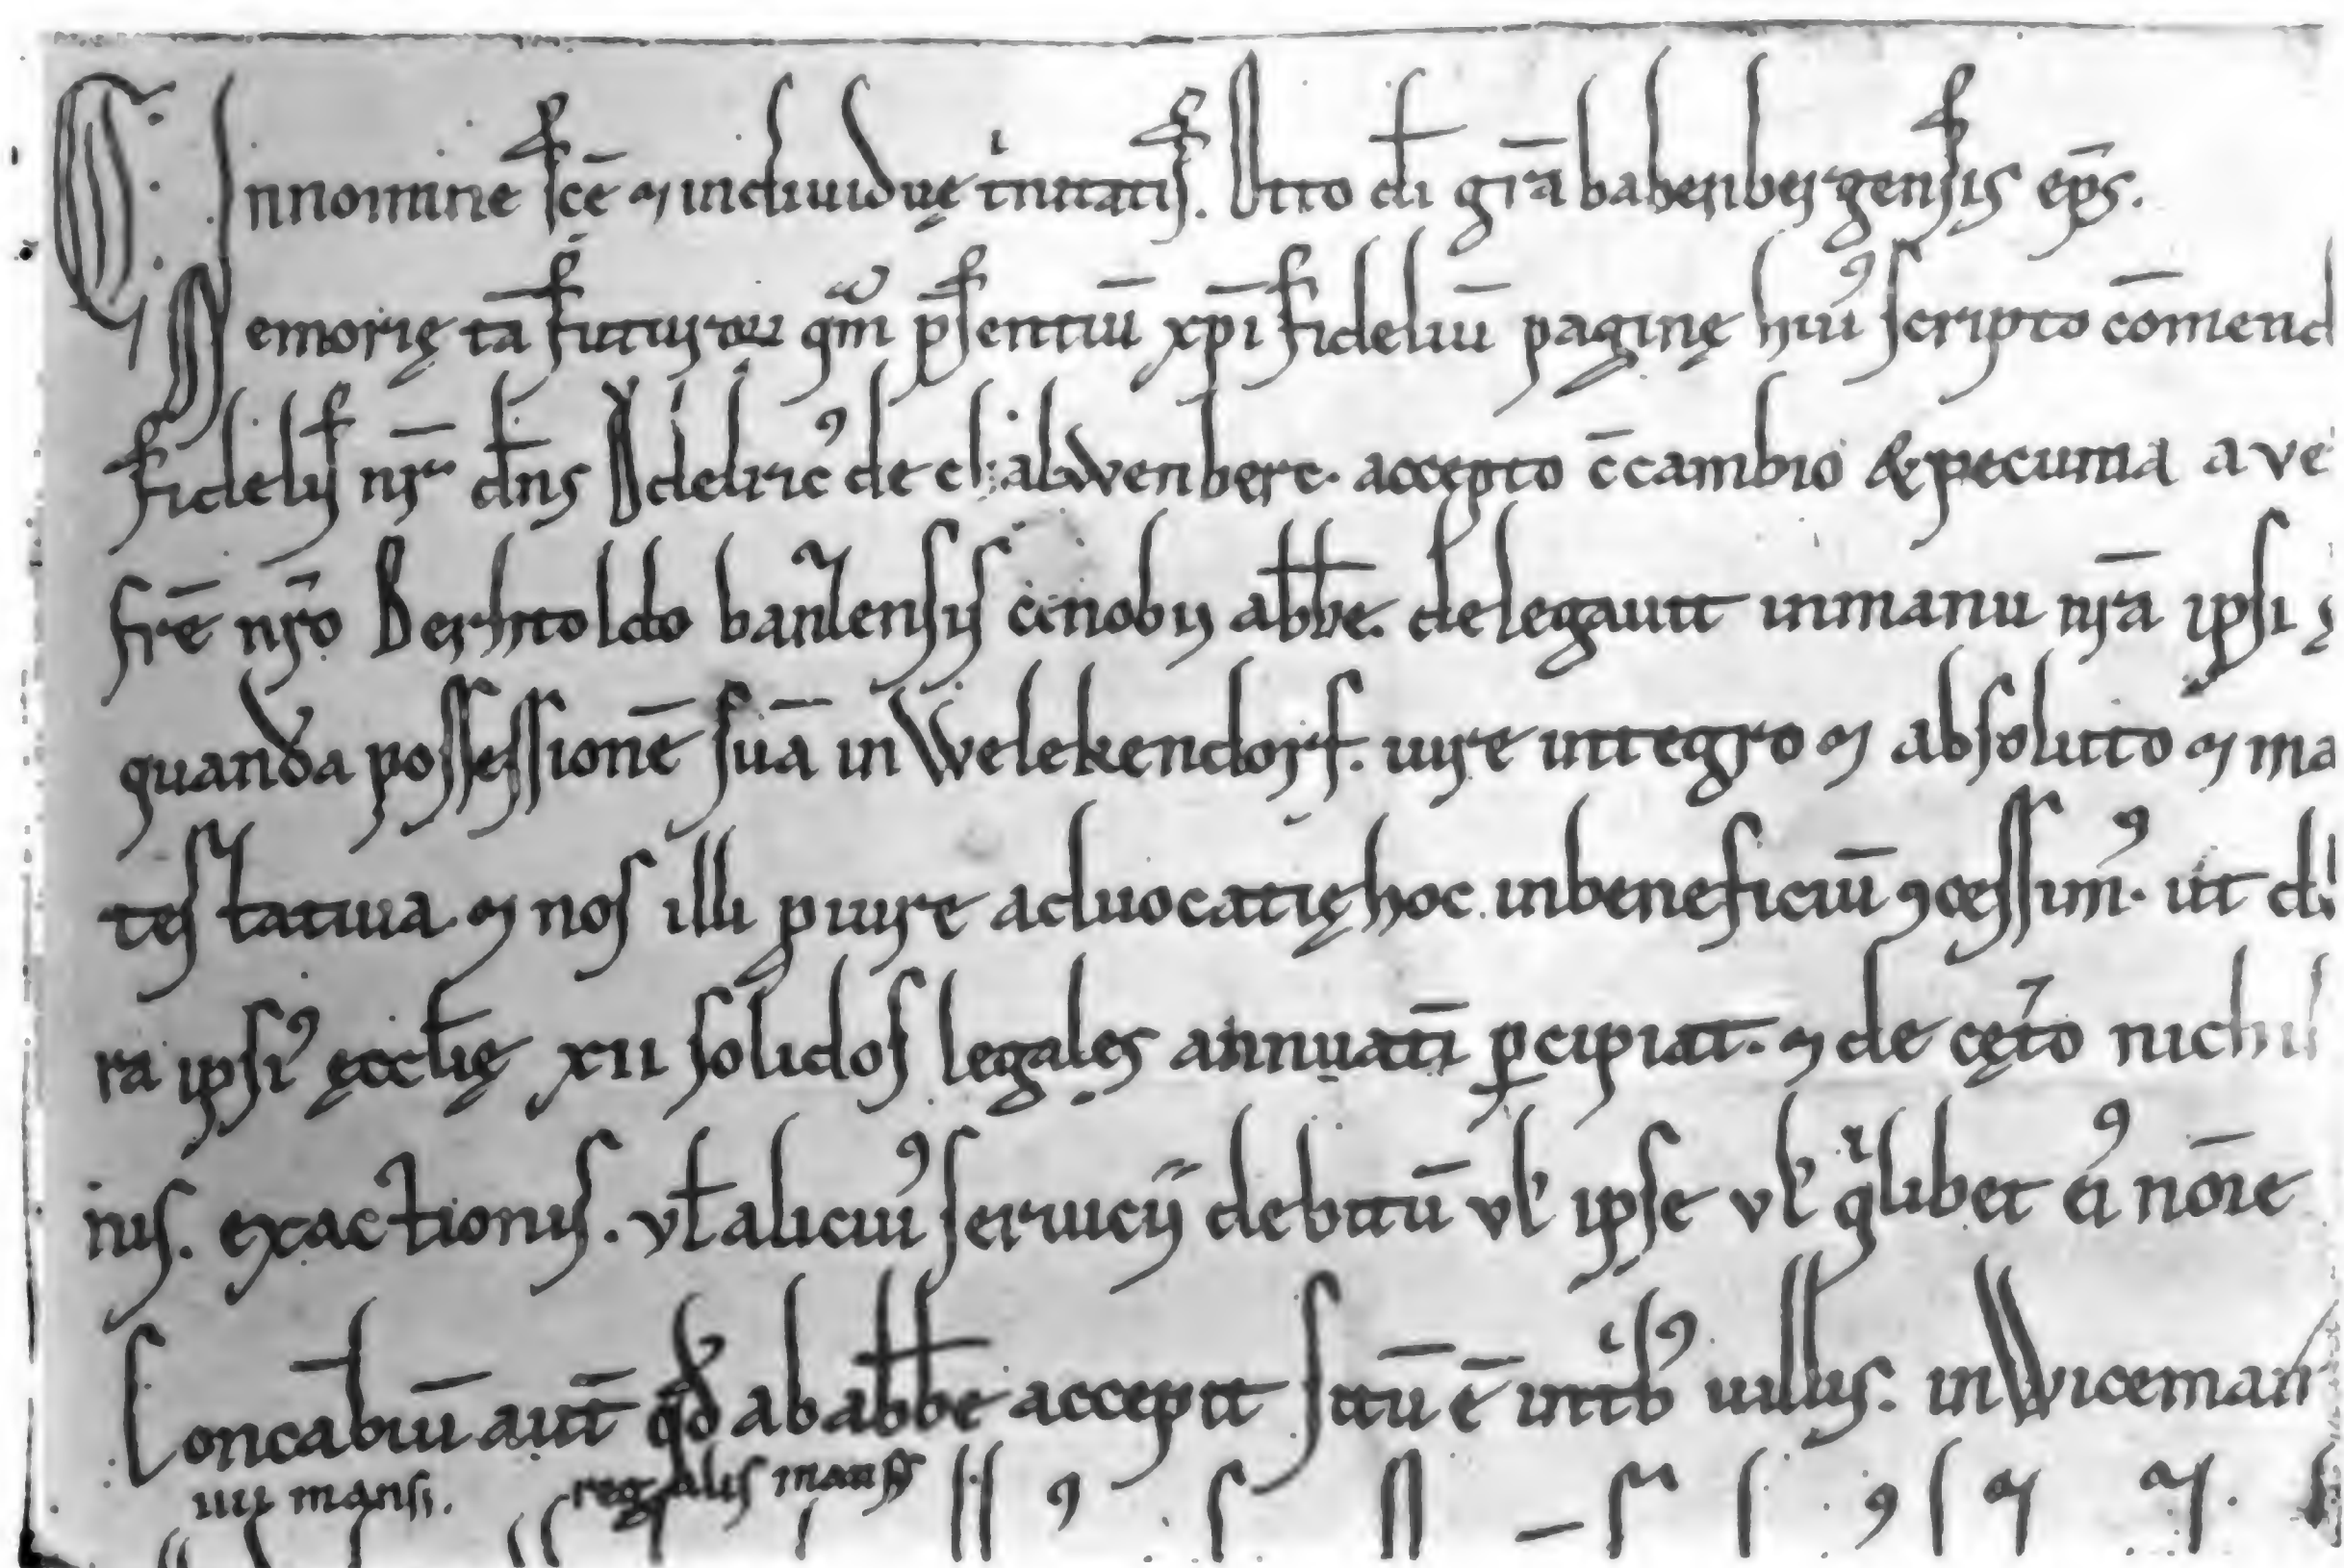 C. Innomine sce̅ ⁊ indiuiduę trinitatis. Otto di̅ gra̅ babenbergensis ep̅s.
Memorię ta̅ futuroꝝ qm̅ p̅sentiu̅ xp̅i fideliu̅ paginę huiꝰ scripto co̅mend
fidelis nr̅ dn̅s Adelricꝰ de chalwenberc. accepto c̅cambio &pecunia a ve
fre̅ nr̅o Berhtoldo banzensis cenobij abb̅e. delegauit inmanu nr̅a ipsi
quanda possessione̅ sua̅ in Welekendorf. iure integro ⁊ absoluto ⁊ ma
testatiua. ⁊ nos illi p iure aduocatię hoc inbeneficiu̅ ꝯcessimꝰ. ut
ra ipsiꝰ ęccl̅ię xii solidos legales annuati̅ p̱cipiat. ⁊ de cęt̅o nichil
nis. exactionis. vl̅ alicuiꝰ seruicij debitu̅ vl̅ ipse vl̅ qͥlibet eiꝰ no̅ie
Concabiu̅ aut̅ qd̅ ab abb̅e accepit situ̅ e̅ intͥbꝰ uillis. in Wiceman
iiii mansi. regalis mansꝰ